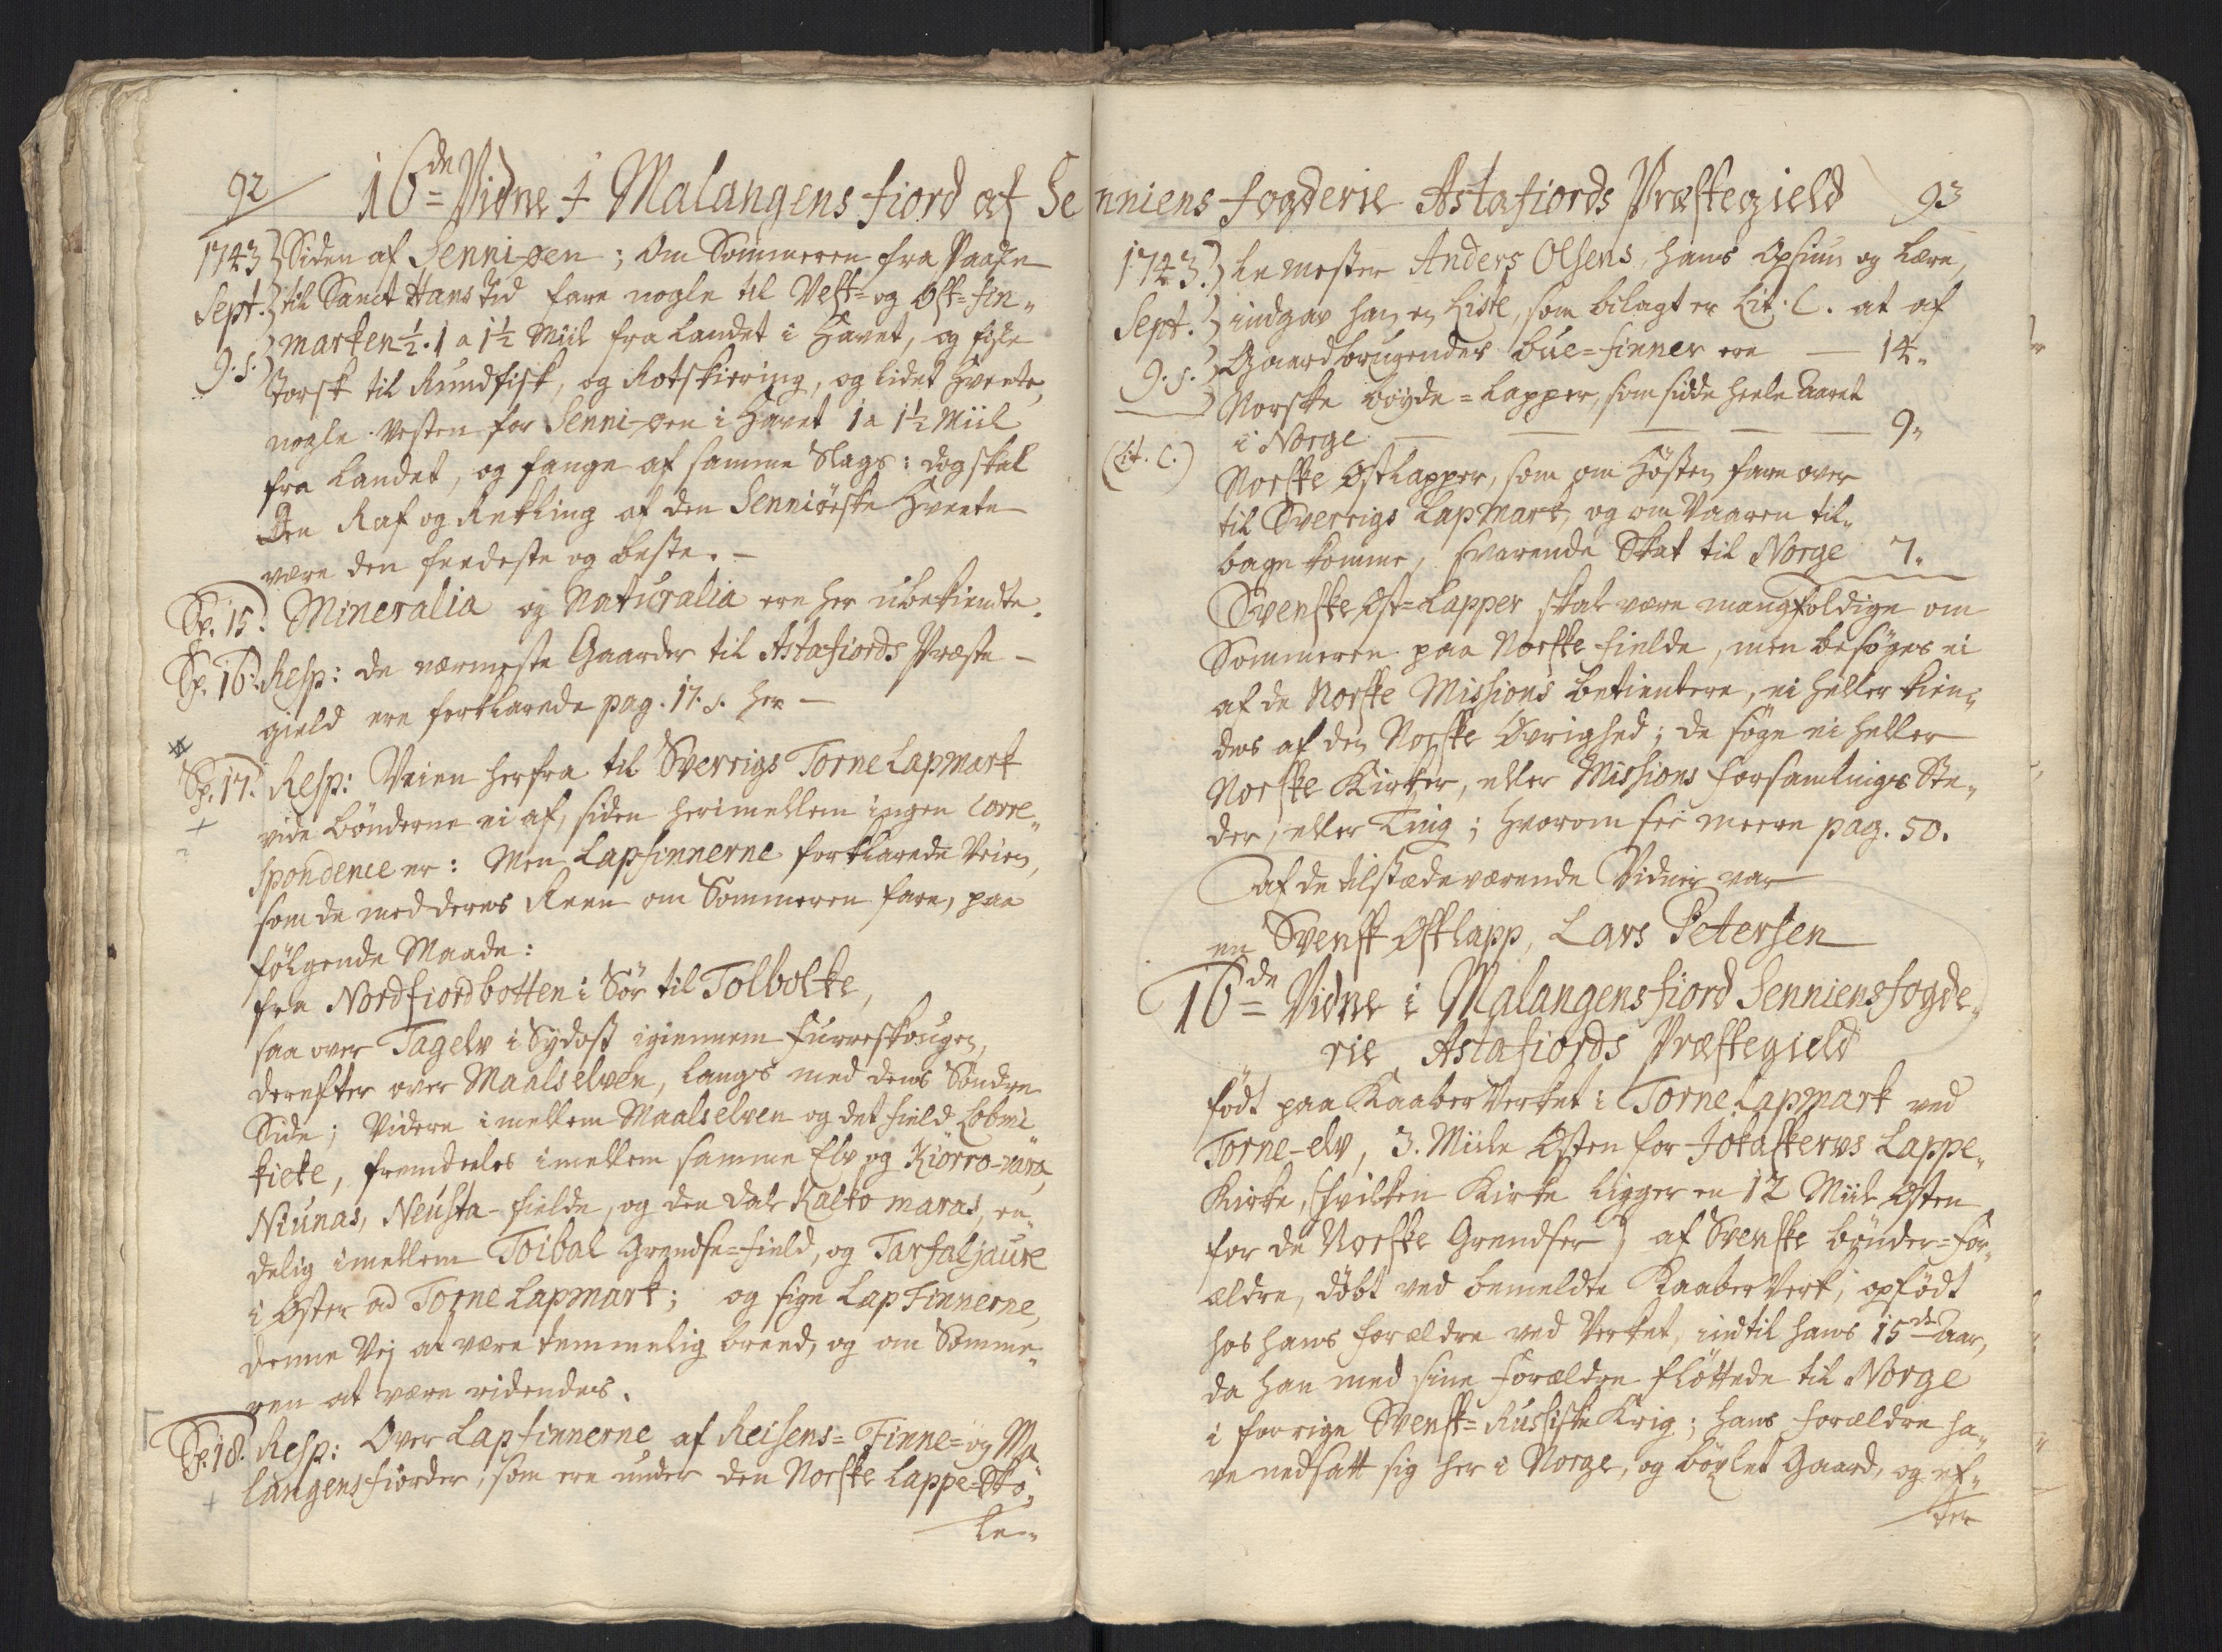 92
16de Vidne I Malangens fiord af Se
1743 Siden af Senni-øen; Om Sommeren fra Paaske
Sept. til Sanct Hans tid fare nogle til Vest- og Ost-fin„
9. s. marken ½. 1 a 1½ Miil fra Landet i Havet, og fiske
Torsk til Rundfisk, og Rotskiering, og lidet Hveete,
nogle Vesten for Senni-øen i Havet 1 a 1½ Miil
fra Landet, og fange af samme Slags: dog skal
den Raf og Rekling af den Senniöeske Hveete
være den feedeste og beste.
Sp. 15. Mineralia og Naturalia ere her ubekiendte.
Sp. 16. Resp: de nærmeste Gaarder til Astafiords Præste-
gield ere forklarede pag. 17. s. her
Sp. 17. Resp: Veien herfra til Sverrigs Torne Lapmark
vide bönderne ei af, siden herimellem ingen Corre„
spondence er: Men Lapfinnerne forklarede Veien,
som de med deres Reen om Sommeren fare, paa
fölgende Maade:
fra Nordfiordbotten i Sör til Tolbolke,
saa over Tagelv i Sydost igiennem furreskougen,
derefter over Maalselven, langs med dens Söndre
Side; Videre imellem Maalselven og det field Lobmi
kieke, fremdeeles imellem samme Elv og Kiörro-vara,
Niunas, Neusta-fielde, og den dal Kalko maras, en„
delig imellem Toibal Grendse-field, og Tarfaljaure
i Öster ad Torne Lapmark; og sige LapFinnerne,
denne Vej at være temmelig breed, og om Somme„
ren at være ridendes.
Sp. 18. Resp: Over Lapfinnerne af Reisens- Finne- og Ma„
langens fiorder, som ere under den Norske Lappe-Sko„
le„
nniens fogderie Astafiords Præstegield 93
1743. lemester Anders Olsens, hans Opsiun og Lære,
Sept. indgav han en Liste, som bilagt er Lit. C. at af
9. s. Gaardbrugendes bue-finner ere — 14„
Norske böyde-Lapper, som sidde heele Aaret
(Lit. C.) i Norge — — — — 9„
Norske Ostlapper, som om Hösten fare over
til Sverrigs Lapmark, og om Vaaren til„
bage komme, svarende Skat til Norge 7„
Svenske Ost-Lapper skal være mangfoldige om
Sommeren paa Norske fielde, men besöges ei
af de Norske Missions betientere, ei heller kien„
des af den Norske Övrighed; de söge ei heller
Norske Kirker, eller Missions forsamlings Ste„
der, eller Ting; hvorom sees meere pag. 50.
af de tilstædeværende Vidner var
en Svensk Ostlapp, Lars Petersen
16de Vidne i Malangens fiord Senniens fogde„
rie Astafiords Præstegield
födt paa Kaaber Verket i Torne Lapmark ved
Torne-elv, 3. Miile Osten for Jokaskervs Lappe„
Kirke, (hvilken Kirke ligger en 12 Miil Osten
for de Norske Grendser) af Svenske bönder-for„
ældre, döbt ved bemeldte Kaaber Verk, opfödt
hos hans forældre ved Verket, indtil hans 15de Aar,
da han med sine forældre flöttede til Norge
i forrige Svensk-Russiske Krig; hans forældre ha„
ve nedsatt sig her i Norge, og böxlet Gaard, og ef„
ter